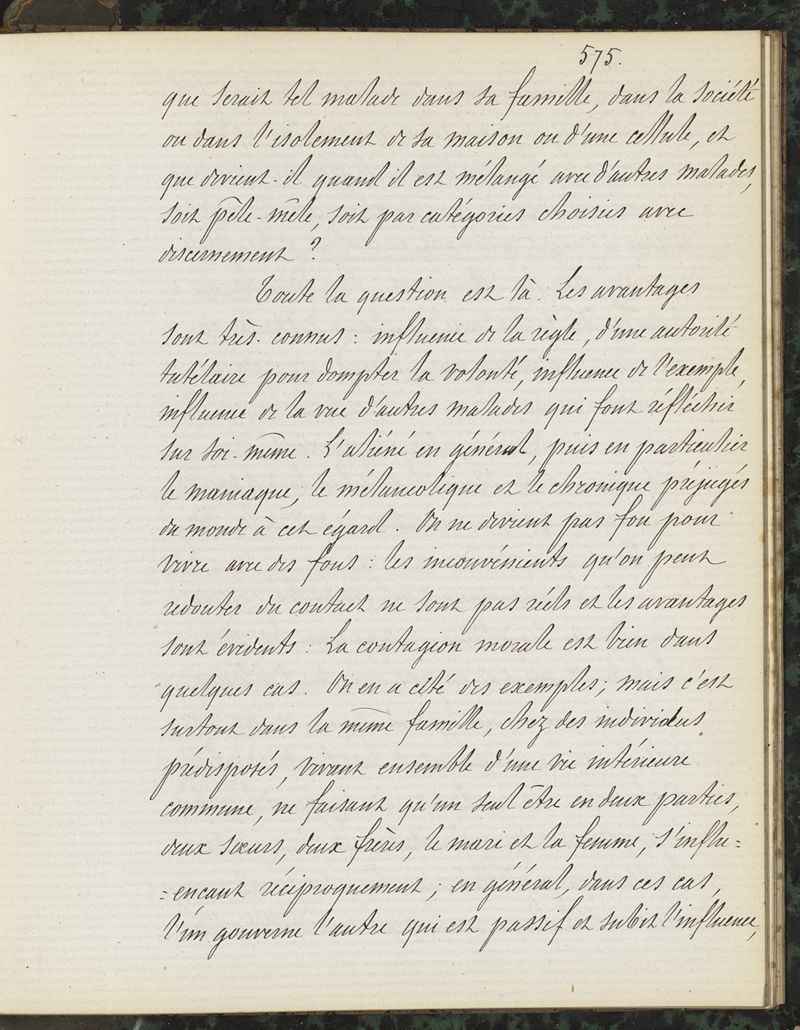 575.
que serait tel malade dans sa famille, dans la société
ou dans l'isolement de sa maison ou d'une cellule, et
que devient-il quand il est mélangé avec d'autres malades,
soit pêle-mêle, soit par catégories choisies avec
discernement ?
Toute la question est là. Les avantages
sont très-connus : influence de la règle, d'une autorité
tutélaire pour dompter la volonté, influence de l'exemple,
influence de la vue d'autres malades qui font réfléchir
sur soi-même. L'aliéné en général, puis en particulier
le maniaque, le mélancolique et le chronique préjugés
du monde à cet égard. On ne devient pas fou pour
vivre avec des fous : les inconvénients qu'on peut
redouter du contact ne sont pas réels et les avantages
sont évidents : La contagion morale est bien dans
quelques cas. On en a cité des exemples ; mais c'est
surtout dans la même famille, chez des individus
prédisposés, vivant ensemble d'une vie intérieure
commune, ne faisant qu'un seul être en deux parties,
deux sœurs, deux frères, le mari et la femme, s'influ=
=ençant réciproquement ; en général, dans ces cas,
l'un gouverne l'autre qui est passif et subit l'influence,